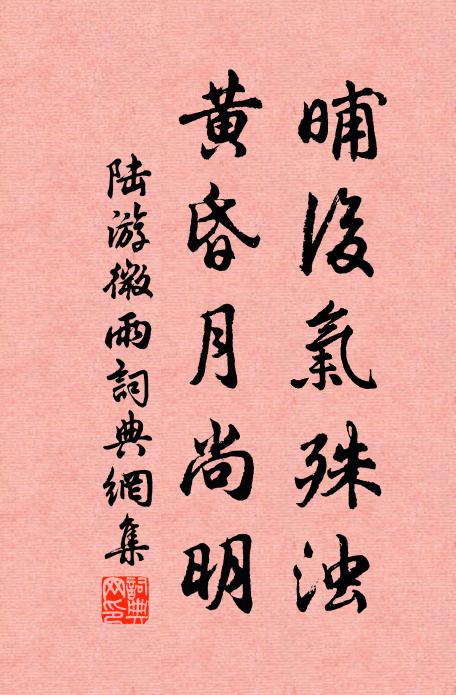 晡後氣殊浊
黄昏月尚明
陆游微雨詞典網集
詞典网印